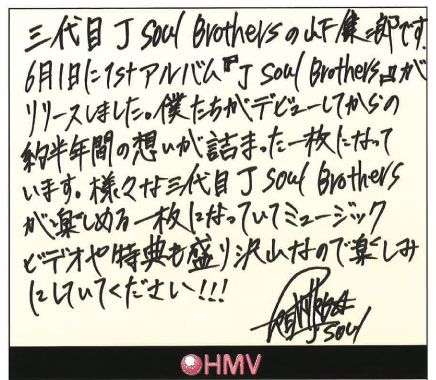 三代目 J Soul Brothersの山下健二郎です。
6月1日に1stアルバム『J Soul Brothers』が
リリースしました。僕たちがデビューしてからの
約半年間の想いが詰まった一枚になって
います。様々な三代目 J Soul Brothers
が楽しめる一枚になっていてミュージック
ビデオや特典も盛り沢山なので楽しみ
にしていてください!!!
J Soul
HMV